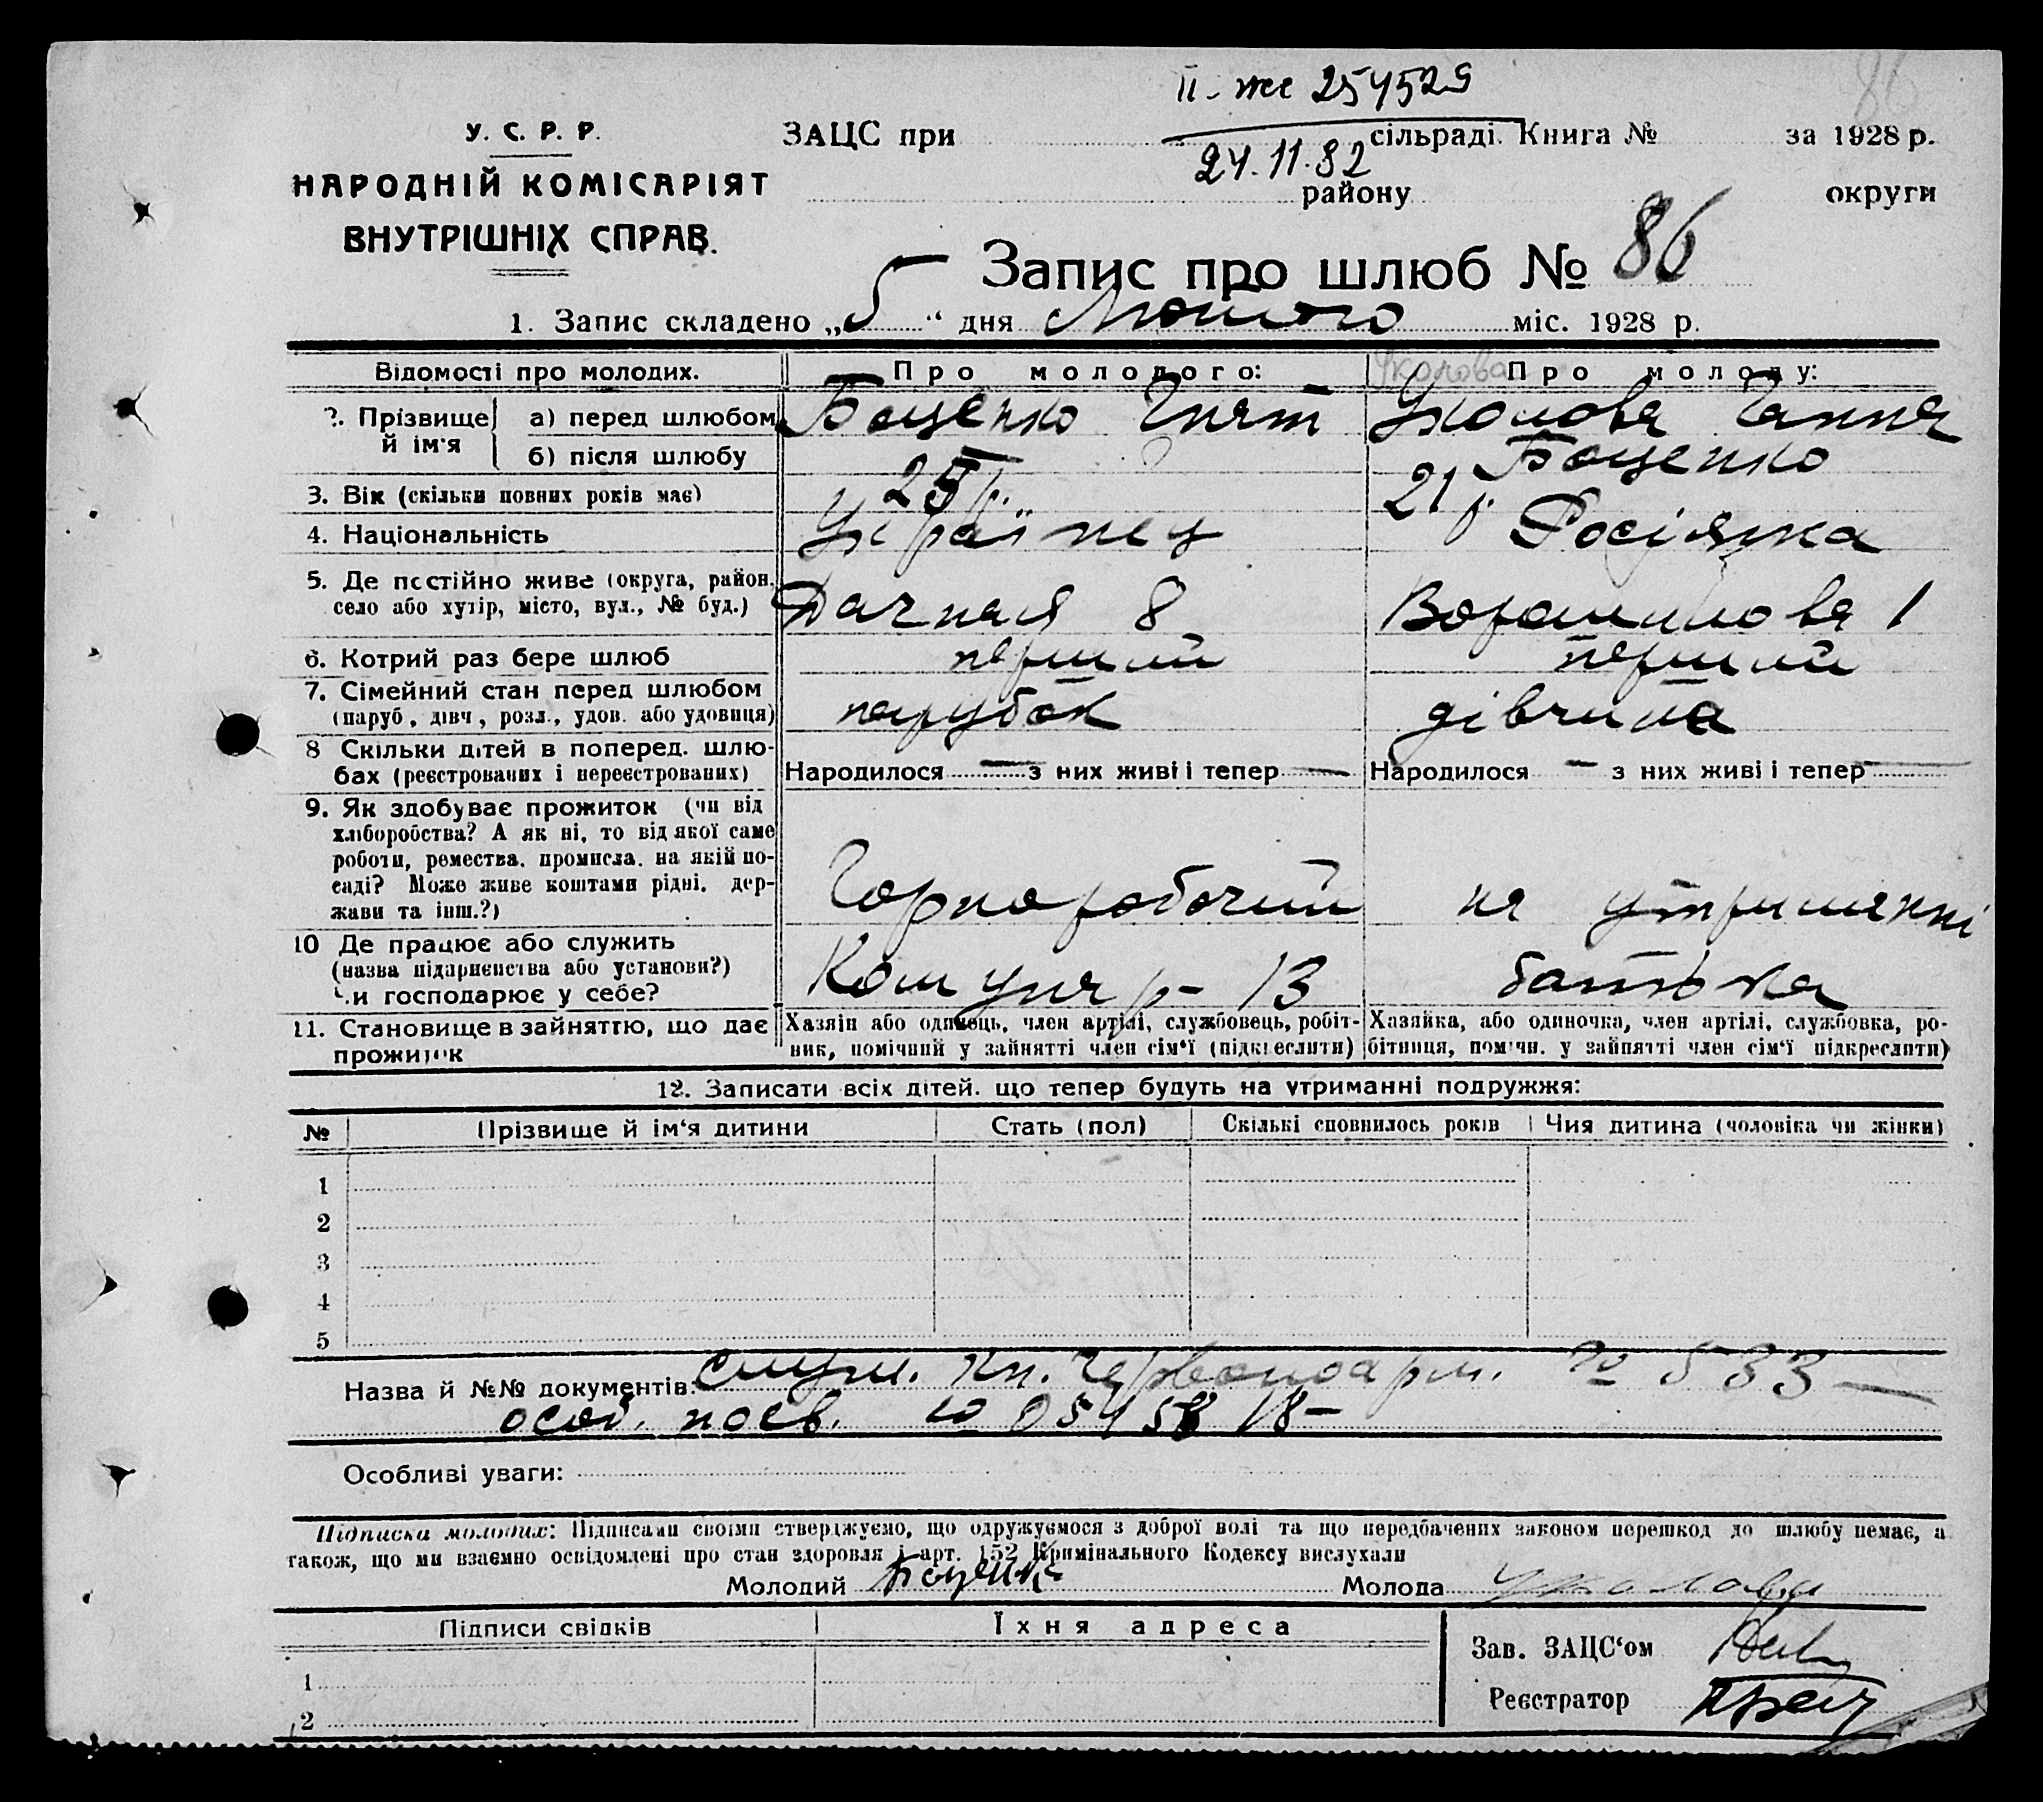 86
II-же 254529
У. С. Р. Р.
ЗАЦС при сільраді. Книга № за 1928 р.
24.11.82
НАРОДНІЙ КОМІСАРІЯТ
району округи
ВНУТРІШНІХ СПРАВ.
Запис про шлюб № 86
1. Запис складено „5“ дня Лютого міс. 1928 р.
Відомості про молодих. Про молодого: Про молоду:
Уколова
2. Прізвище й ім'я а) перед шлюбом Боценко Гнят Уколова Ганна
б) після шлюбу Боценко
3. Вік (скільки повних років має) 25 р. 21 р.
4. Національність Українец Росіянка
5. Де постійно живе (округа, район,
село або хутір, місто, вул., № буд.) Дачная 8 Ворошилова 1
6. Котрий раз бере шлюб перший перший
7. Сімейний стан перед шлюбом
(паруб., дівч., розл., удов. або удовиця) парубок дівчина
8 Скільки дітей в поперед. шлю-
бах (реєстрованих і нереєстрованих) Народилося — з них живі і тепер — Народилося — з них живі і тепер —
9. Як здобуває прожиток (чи від
хліборобства? А як ні, то від якої саме
роботи, ремества, промисла, на якій по-
саді? Може живе коштами рідні, дер-
жави та інш.?) Чорноробочий на утриманні
10 Де працює або служить
(назва підприємства або установи?)
Чи господарює у себе? Комуна р- 13 батька
11. Становище в зайняттю, що дає
прожиток
Хазяїн або одинець, член артілі, службовець, робіт-
ник, помічний у зайнятті член сім'ї (підкреслити)
Хазяйка, або одиночка, член артілі, службовка, ро-
бітниця, помічн. у зайнятті член сім'ї підкреслити)
12. Записати всіх дітей, що тепер будуть на утриманні подружжя:
№ Прізвище й ім'я дитини Стать (пол) Скількі сповнилось років Чия дитина (чоловіка чи жінки)
1
2
3
4
5
Назва й №№ документів: служ. кн. Червоноарм. № 533 —
особ. посв.
Особливі уваги:
Підписка молодих: Підписами своїми стверджуємо, що одружуємося з доброї волі та що передбачених законом перешкод до шлюбу немає, а
також, що ми взаємно освідомлені про стан здоровля і арт. 152 Кримінального Кодексу вислухали
Молодий Боценко Молода Уколова
Підписи свідків Їхня адреса
Зав. ЗАЦС'ом
1
Реєстратор
2